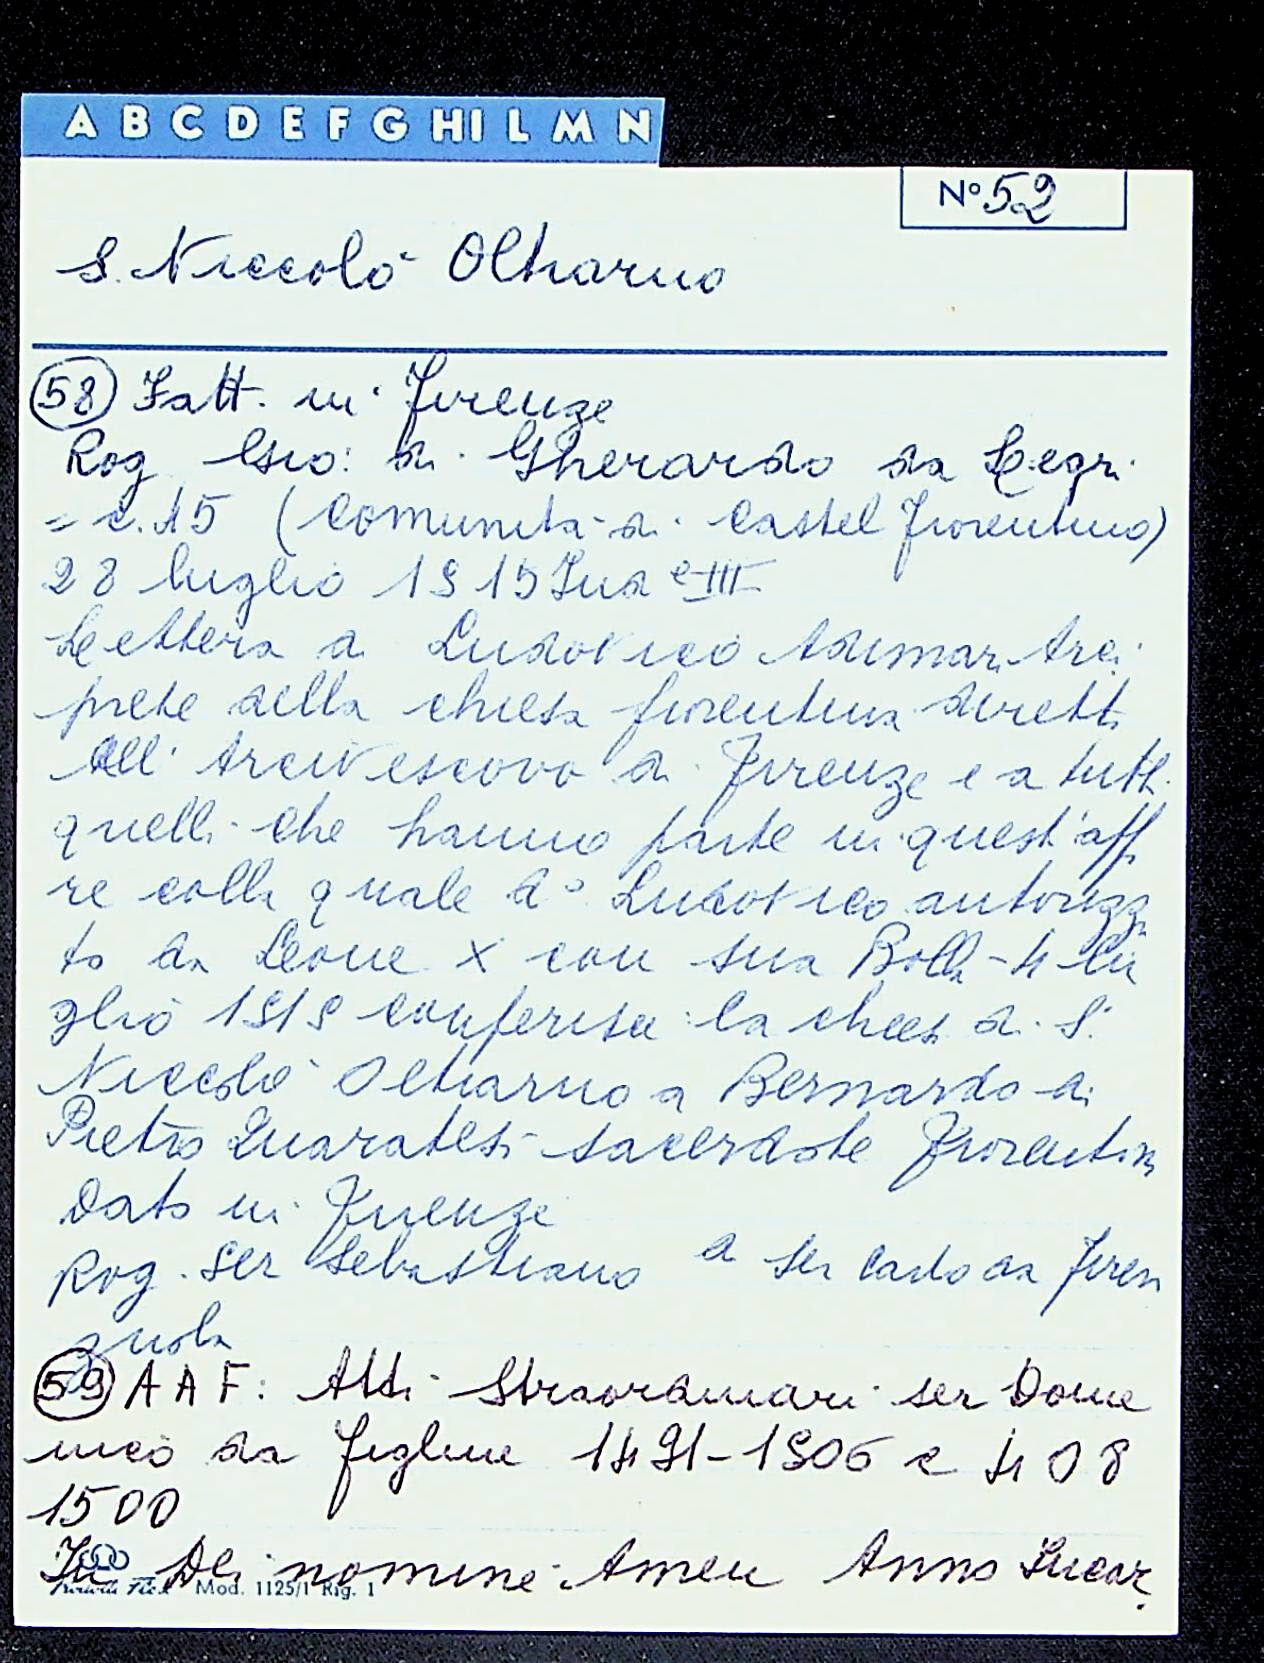 A B C D E F G HI L M N
N° 52
S. Niccolò Oltrarno
58 Fatt. in Firenze
Rog Gio: di Gherardo da
= c. 15 (Comunità di Castel Fiorentino)
28 luglio 1515 Ind e III
Lettera di Ludovico Adimari Arci
prete della chiesa fiorentina diretta
All' Arcivescovo di Firenze e a tutti
quelli che hanno parte in quest' aff
re colla quale do Ludovico autorizza
to da Leone X con sua Bolla - 4 lu
glio 1515 conferisce la chiesa di S.
Niccolò Oltrarno a Bernardo di
Pietro Quaratesi sacerdote Fiorentin
Dato in Firenze
Rog. Ser Sebastiano di ser Carlo da Firen
zuola
59 A A F: Atti Straordinari ser Dome
nico da Figline 1491-1506 c 408
1500
In Dei nomine Amen Anno Incar.
Mod. 1125/1 Rig. 1